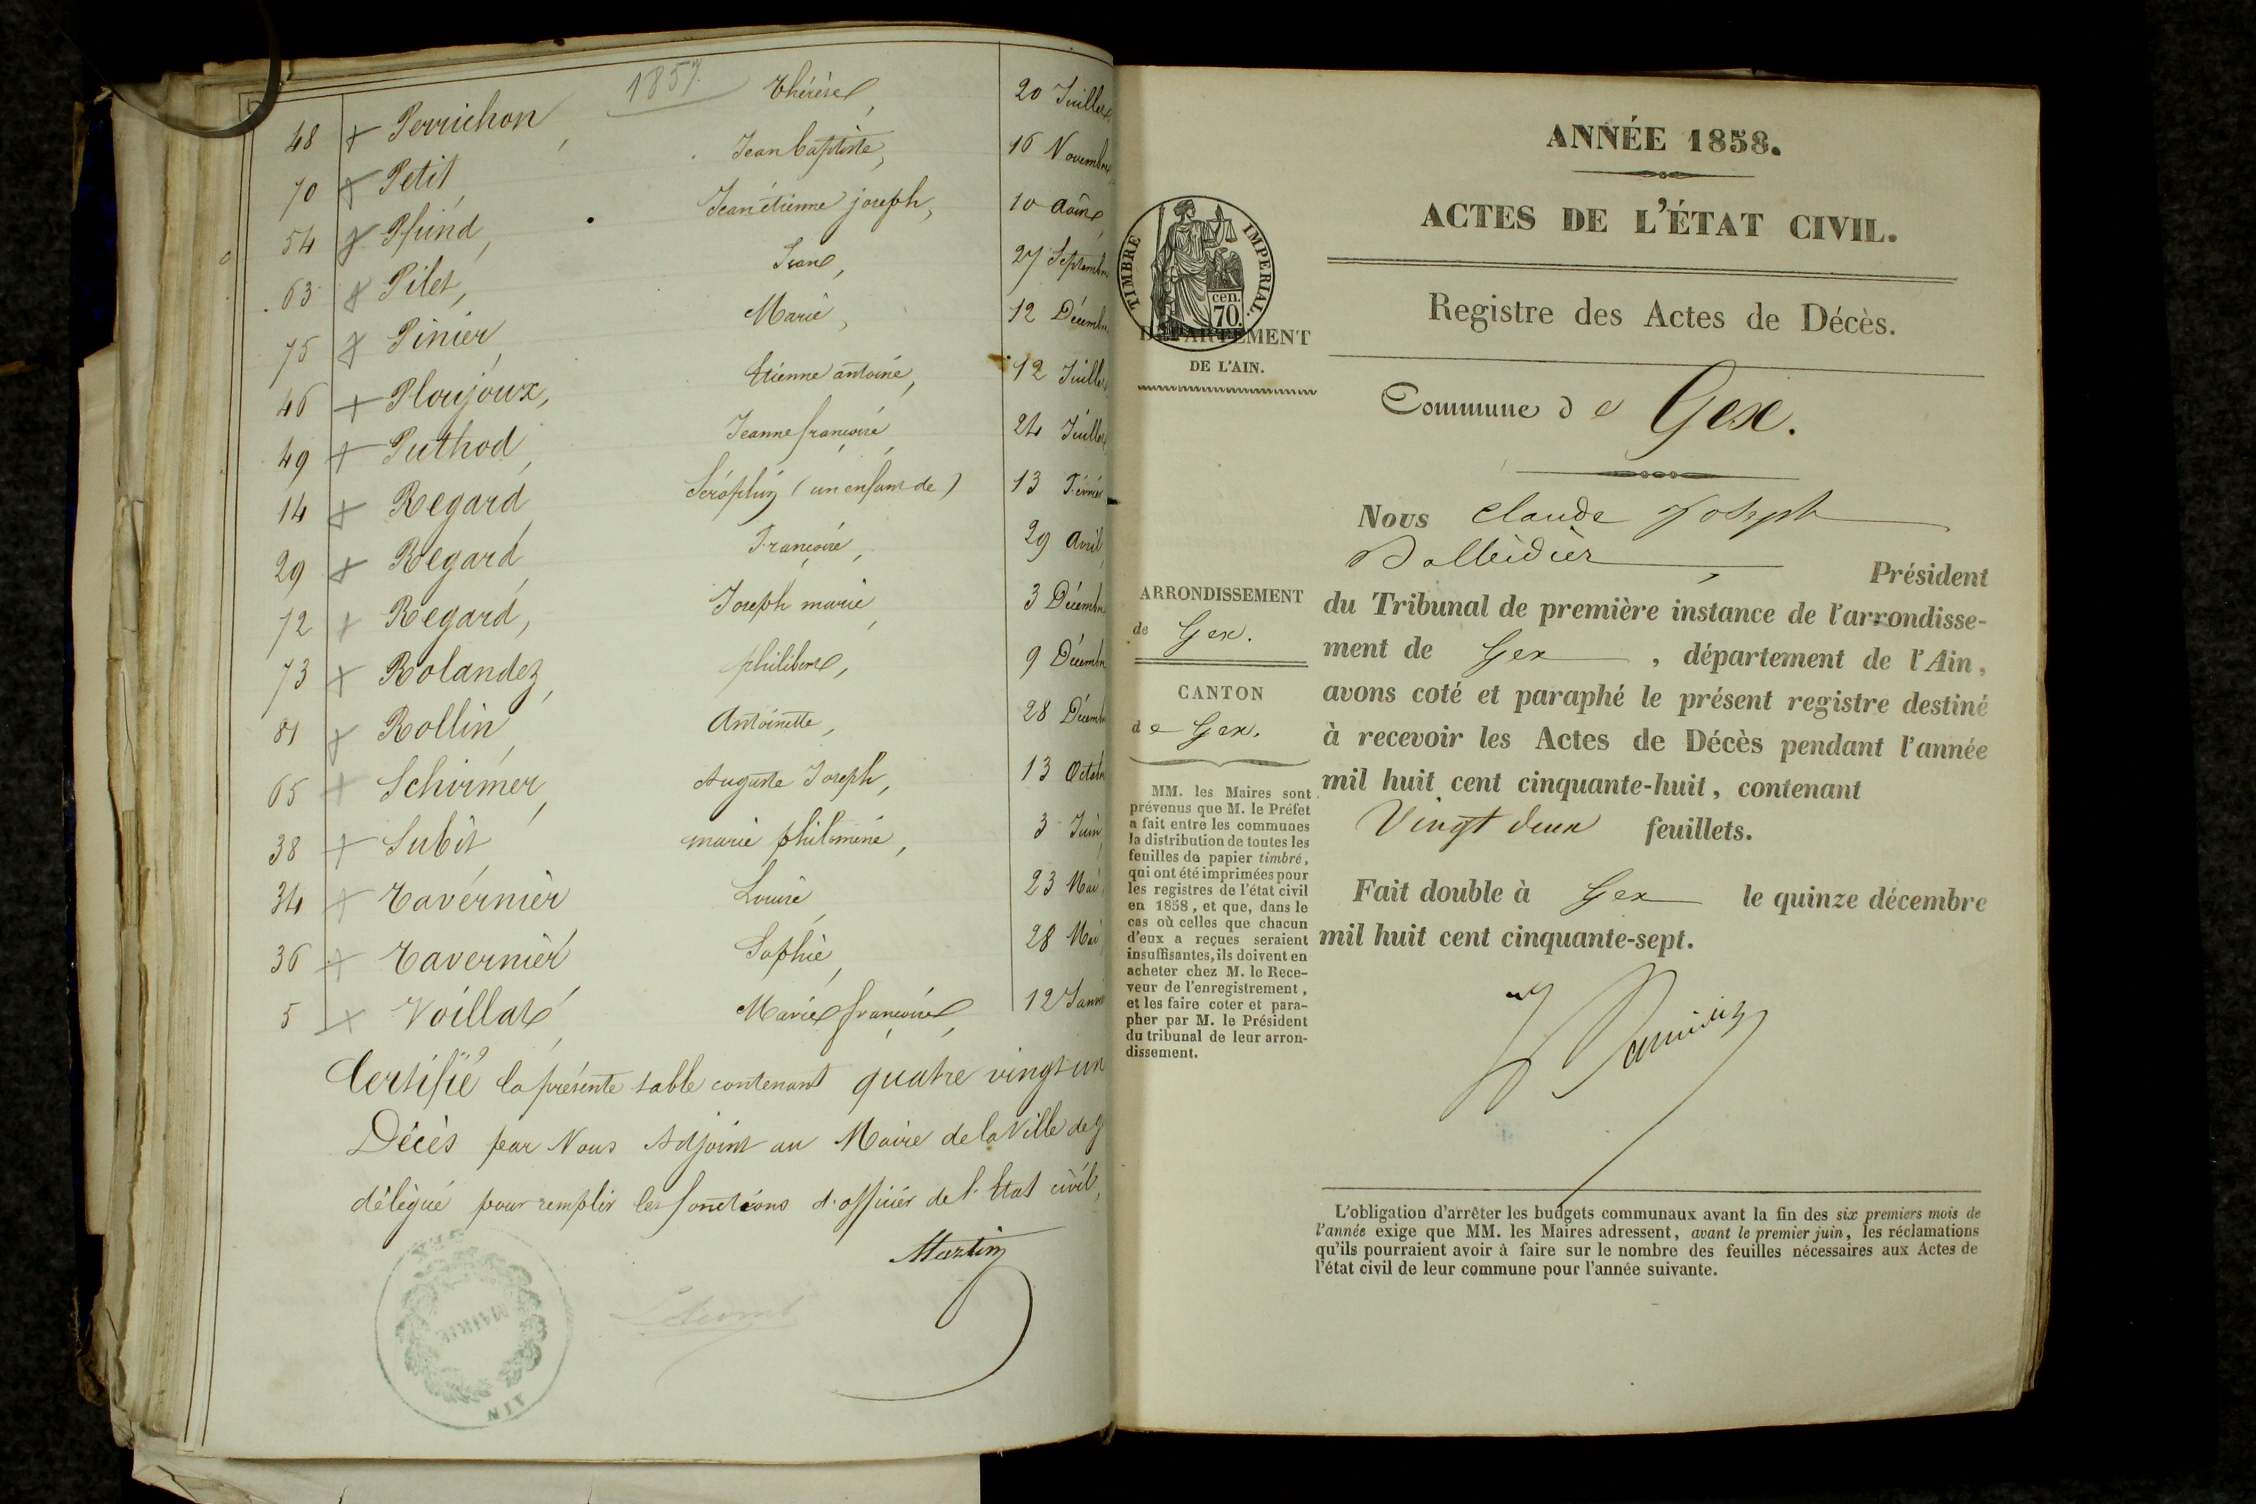 1857
48 + Perrichon, Thérèse, 20 Juillet
70 + Petit, Jean baptiste, 16 Novembre
54 + Pfund, Jean étienne joseph, 10 août
63 + Pilet, Jean, 27 Septembre
75 + Pinier, Marie, 12 Décembre
46 + Ploujoux, Etienne antoine, 12 Juillet
49 + Puthod, Jeanne françoise, 24 Juillet
14 + Regard, Séraphin (un enfant de) 13 Février
29 + Regard, Françoise, 29 avril
72 + Regard, Joseph marie, 3 Décembre
73 + Rolandez, philibert, 9 Décembre
81 + Rollin, Antoinette, 28 Décembre
65 + Schirmer, Auguste Joseph, 13 Octobre
38 + Subit, marie philomène, 3 Juin
34 + Tavernier Louise, 23 Mai
36 + Tavernier Sophie, 28 Mai
5 + Voillat, Marie françoise, 12 Janvi
Certifié la présente table contenant quatre vingt un
Décès par Nous Adjoint au Maire de la Ville de G
délégué pour remplir les fonctions d'officier de l'Etat civil,
Martin
MAIRIE
AIN
ANNÉE 1858.
ACTES DE L'ÉTAT CIVIL.
Registre des Actes de Décès.
TIMBRE IMPERIAL.
cen.
70
DÉPARTEMENT
DE L'AIN.
Commune de Gex.
ARRONDISSEMENT
de Gex.
CANTON
de Gex.
MM. les Maires sont
prévenus que M. le Préfet
a fait entre les communes
la distribution de toutes les
feuilles de papier timbré,
qui ont été imprimées pour
les registres de l'état civil
en 1858, et que, dans le
cas où celles que chacun
d'eux a reçues seraient
insuffisantes, ils doivent en
acheter chez M. le Rece-
veur de l'enregistrement,
et les faire coter et para-
pher par M. le Président
du tribunal de leur arron-
dissement.
Nous Claude Joseph
Président
du Tribunal de première instance de l'arrondisse-
ment de Gex, département de l'Ain,
avons coté et paraphé le présent registre destiné
à recevoir les Actes de Décès pendant l'année
mil huit cent cinquante-huit, contenant
Vingt deux feuillets.
Fait double à Gex le quinze décembre
mil huit cent cinquante-sept.
L'obligation d'arrêter les budgets communaux avant la fin des six premiers mois de
l'année exige que MM. les Maires adressent, avant le premier juin, les réclamations
qu'ils pourraient avoir à faire sur le nombre des feuilles nécessaires aux Actes de
l'état civil de leur commune pour l'année suivante.